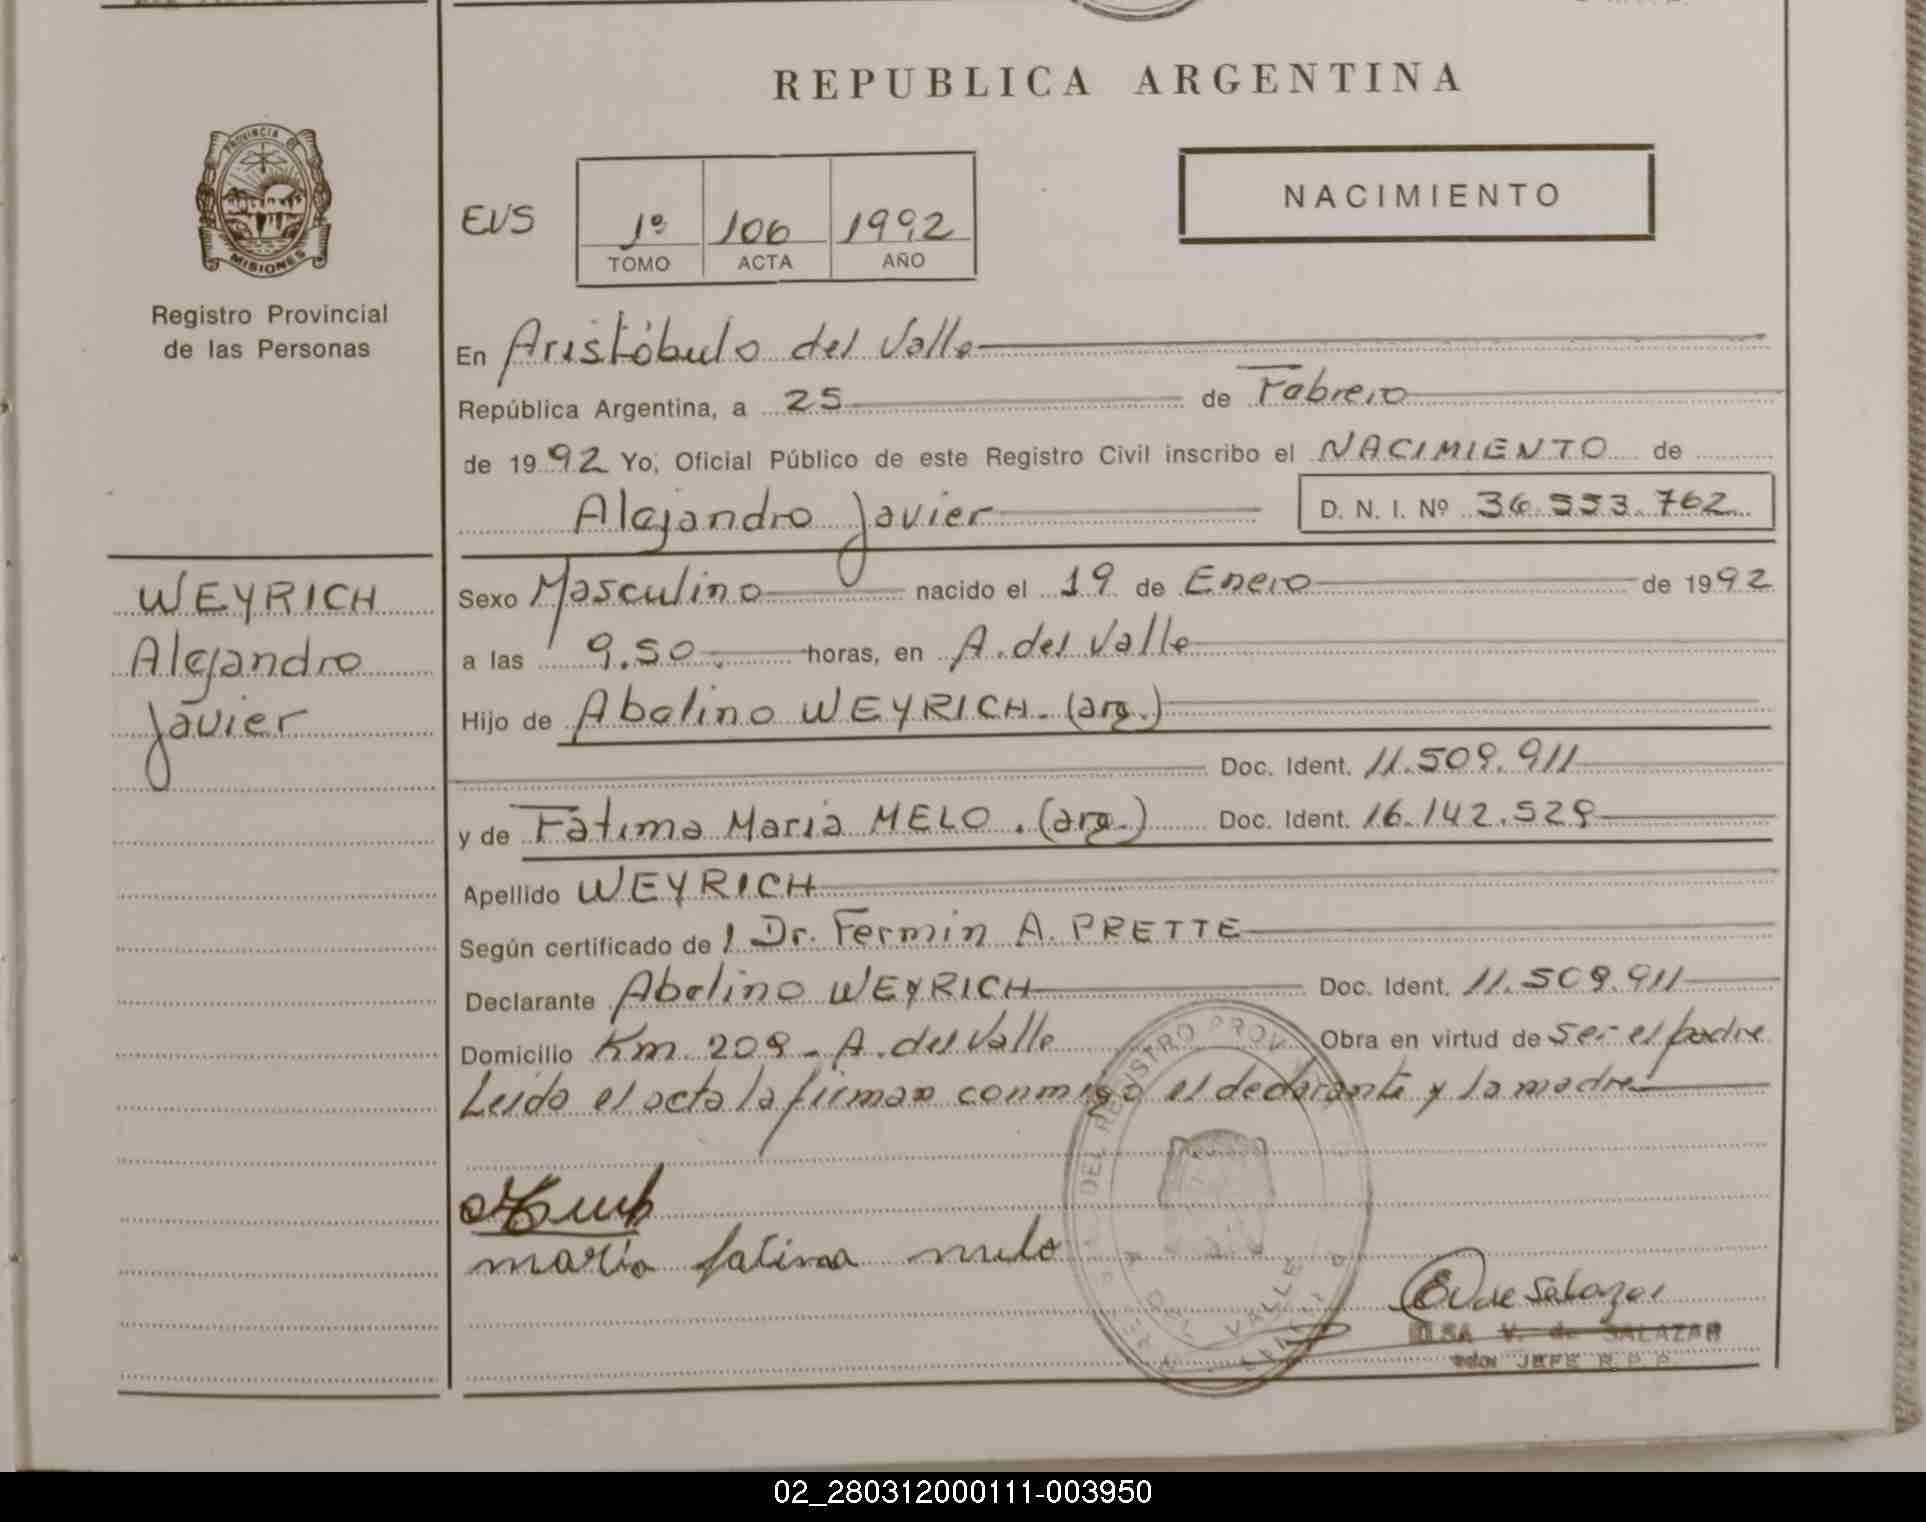 REPUBLICA ARGENTINA
PROVINCIA DE
MISIONES
Registro Provincial
de las Personas
EVS
1º 106 1992
TOMO ACTA AÑO
NACIMIENTO
En Aristóbulo del Valle
República Argentina, a 25 de Febrero
de 1992 Yo, Oficial Público de este Registro Civil inscribo el NACIMIENTO de
Alejandro Javier D. N. I. Nº 36.553.762
WEYRICH
Alejandro
Javier
Sexo Masculino nacido el 19 de Enero de 1992
a las 9.50. horas, en A. del Valle
Hijo de Abelino WEYRICH. (arg.)
Doc. Ident. 11.509.911
y de Fátima Maria MELO. (arg.) Doc. Ident. 16.142.529
Apellido WEYRICH
Según certificado de / Dr. Fermin A. PRETTE
Declarante Abelino WEYRICH Doc. Ident. 11.509.911
Domicilio Km 209 - A. del Valle Obra en virtud de ser el padre
Leida el acta la firman conmigo el declarante y la madre
DEL REGISTRO PROV
DEL VALLE
maria fatima melo
EV de Salazar
ELSA V. de SALAZAR
JEFE R.P.P.
02_280312000111-003950